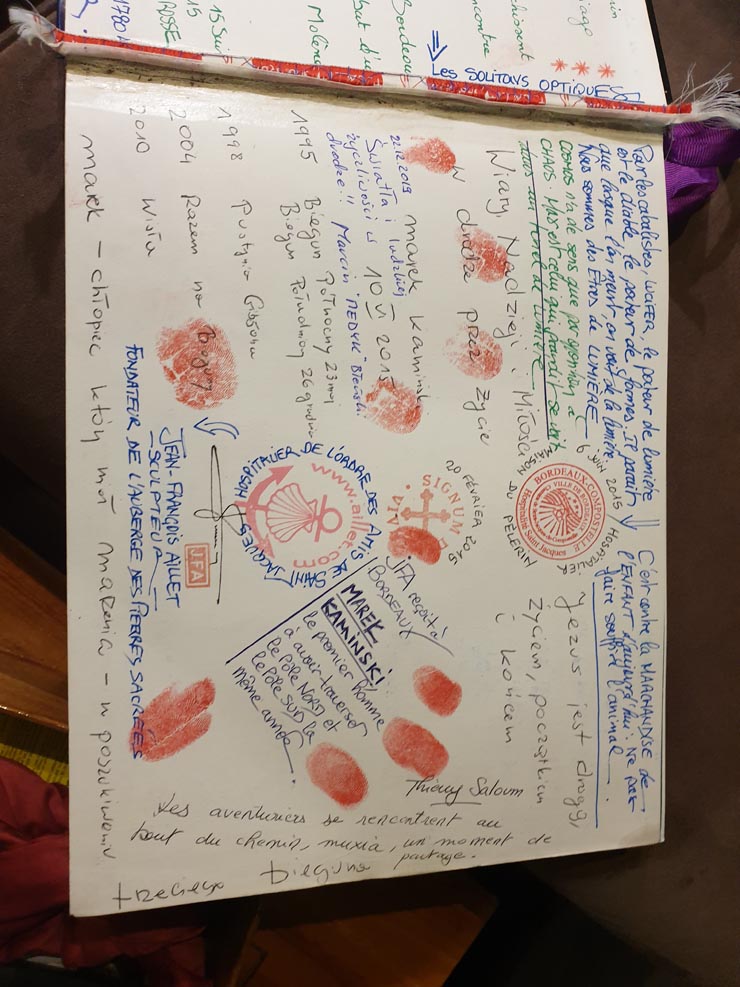 * * *
⇒ LES SOLITONS OPTIQUES
Par les cabalistes, LUCIFER, le porteur de lumière
est le diable, le porteur de formes. Il paraît
que lorsque l'on meurt on voit de la lumière
Nous sommes des Êtres de LUMIÈRE
COSMOS n'a de sens que par opposition à
CHAOS.
tunnel de lumière
C'est contre la MARCHANDISE de
l'ENFANT d'aujourd'hui : Ne pas
faire souffrir l'animal
6 JUIN 2015 HOSPITALIER
MAISON DU PÈLERIN
BORDEAUX-COMPOSTELLE
VILLE DE BORDEAUX
Hospitalité Saint Jacques
Wiary, Nadzieji i Miłości
w drodze przez życie
marek kamiński
10 VI 2015
22.12.2019
Światła i ludzkiej
życzliwości w
drodze!! Marcin "MEDYK"
1995 Biegun Północny 23 maj
Biegun Południowy 26 grudnia
1998 Pustynia Gibsona
2004 Razem na Bieguny
2010 Wisła
marek – chłopiec który miał marzenia – w poszukiwaniu
trzeciego bieguna
Jezus jest drogą,
życiem, początkiem
i końcem
20 FÉVRIER 2015
SIGNUM
VIAE
HOSPITALIER DE L'ORDRE DES AMIS DE SAINT JACQUES
www.aillet.com
JFA
JEAN-FRANÇOIS AILLET
– SCULPTEUR –
FONDATEUR DE L'AUBERGE DES PIERRES SACRÉES
JFA reçoit à
BORDEAUX
MAREK
KAMINSKI
le premier homme
à avoir traverser
le Pôle NORD et
le Pôle SUD la
même année.
Thierry Saloum
Les aventuriers se rencontrent au
bout du chemin, muxia, un moment de
partage.